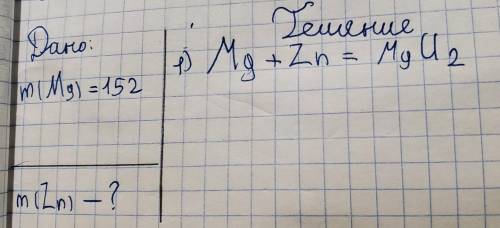 Дано:
m(Mg) = 152
m(Zn) - ?
Решение
1) Mg + Zn = MgCl2